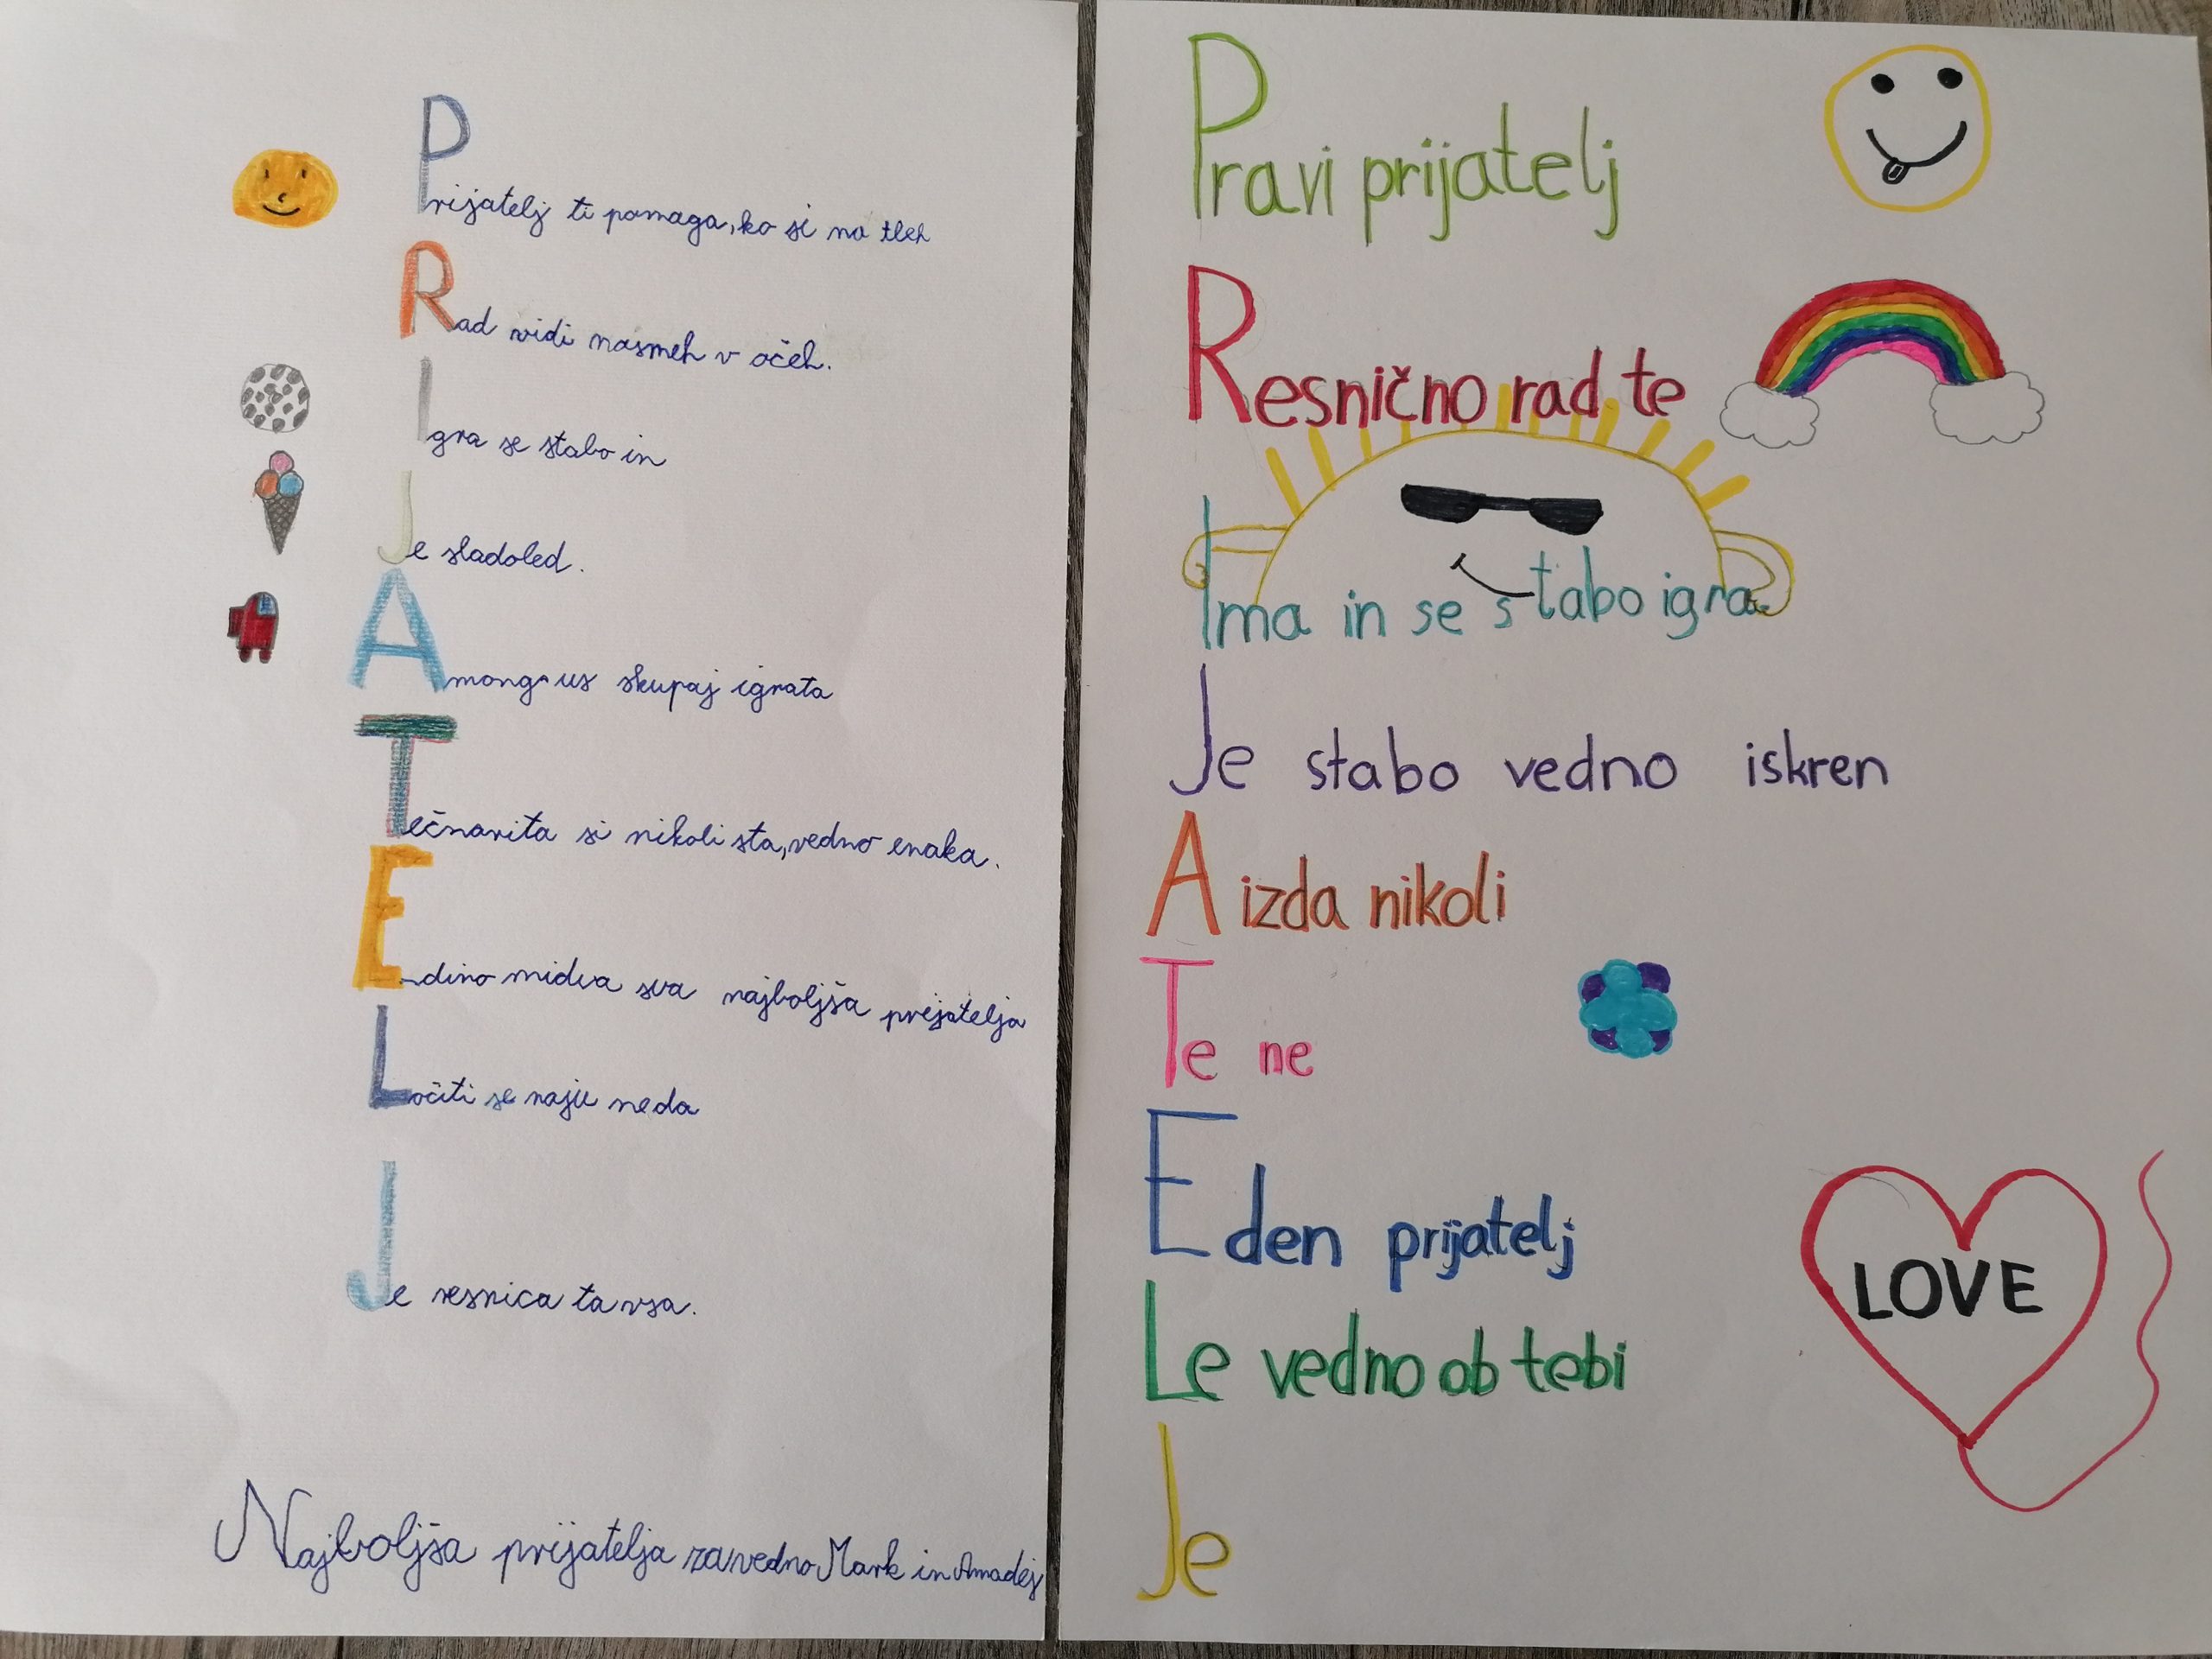 Prijatelj ti pomaga, ko si na tleh
Rad vidi nasmeh v očeh.
Igra se stabo in
Je sladoled.
Among us skupaj igrata
Tečnarita si nikoli sta, vedno enaka.
Edino midva sva najboljša prijatelja
Ločiti se naju neda
Je resnica ta vsa.
Najboljša prijatelja zavedno Mark in Amadej
Pravi prijatelj
Resnično rad te
Ima in se stabo igra.
Je stabo vedno iskren
A izda nikoli
Te ne
Eden prijatelj
Le vedno ob tebi
Je
LOVE